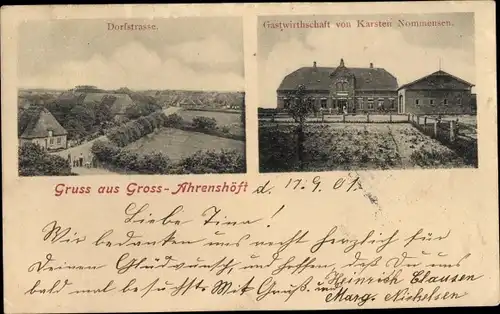 Dorfstrasse.
Gastwirthschaft von Karsten Nommensen.
Gruss aus Gross-Ahrenshöft d. 17.9.01.
Liebe Tine!
Wir bedanken uns recht herzlich für
Deinen Glückwunsch, und hoffen, daß Du uns
bald mal besuchst. Mit Gruß,
Heinrich Clausen
und Marg. Nichelsen